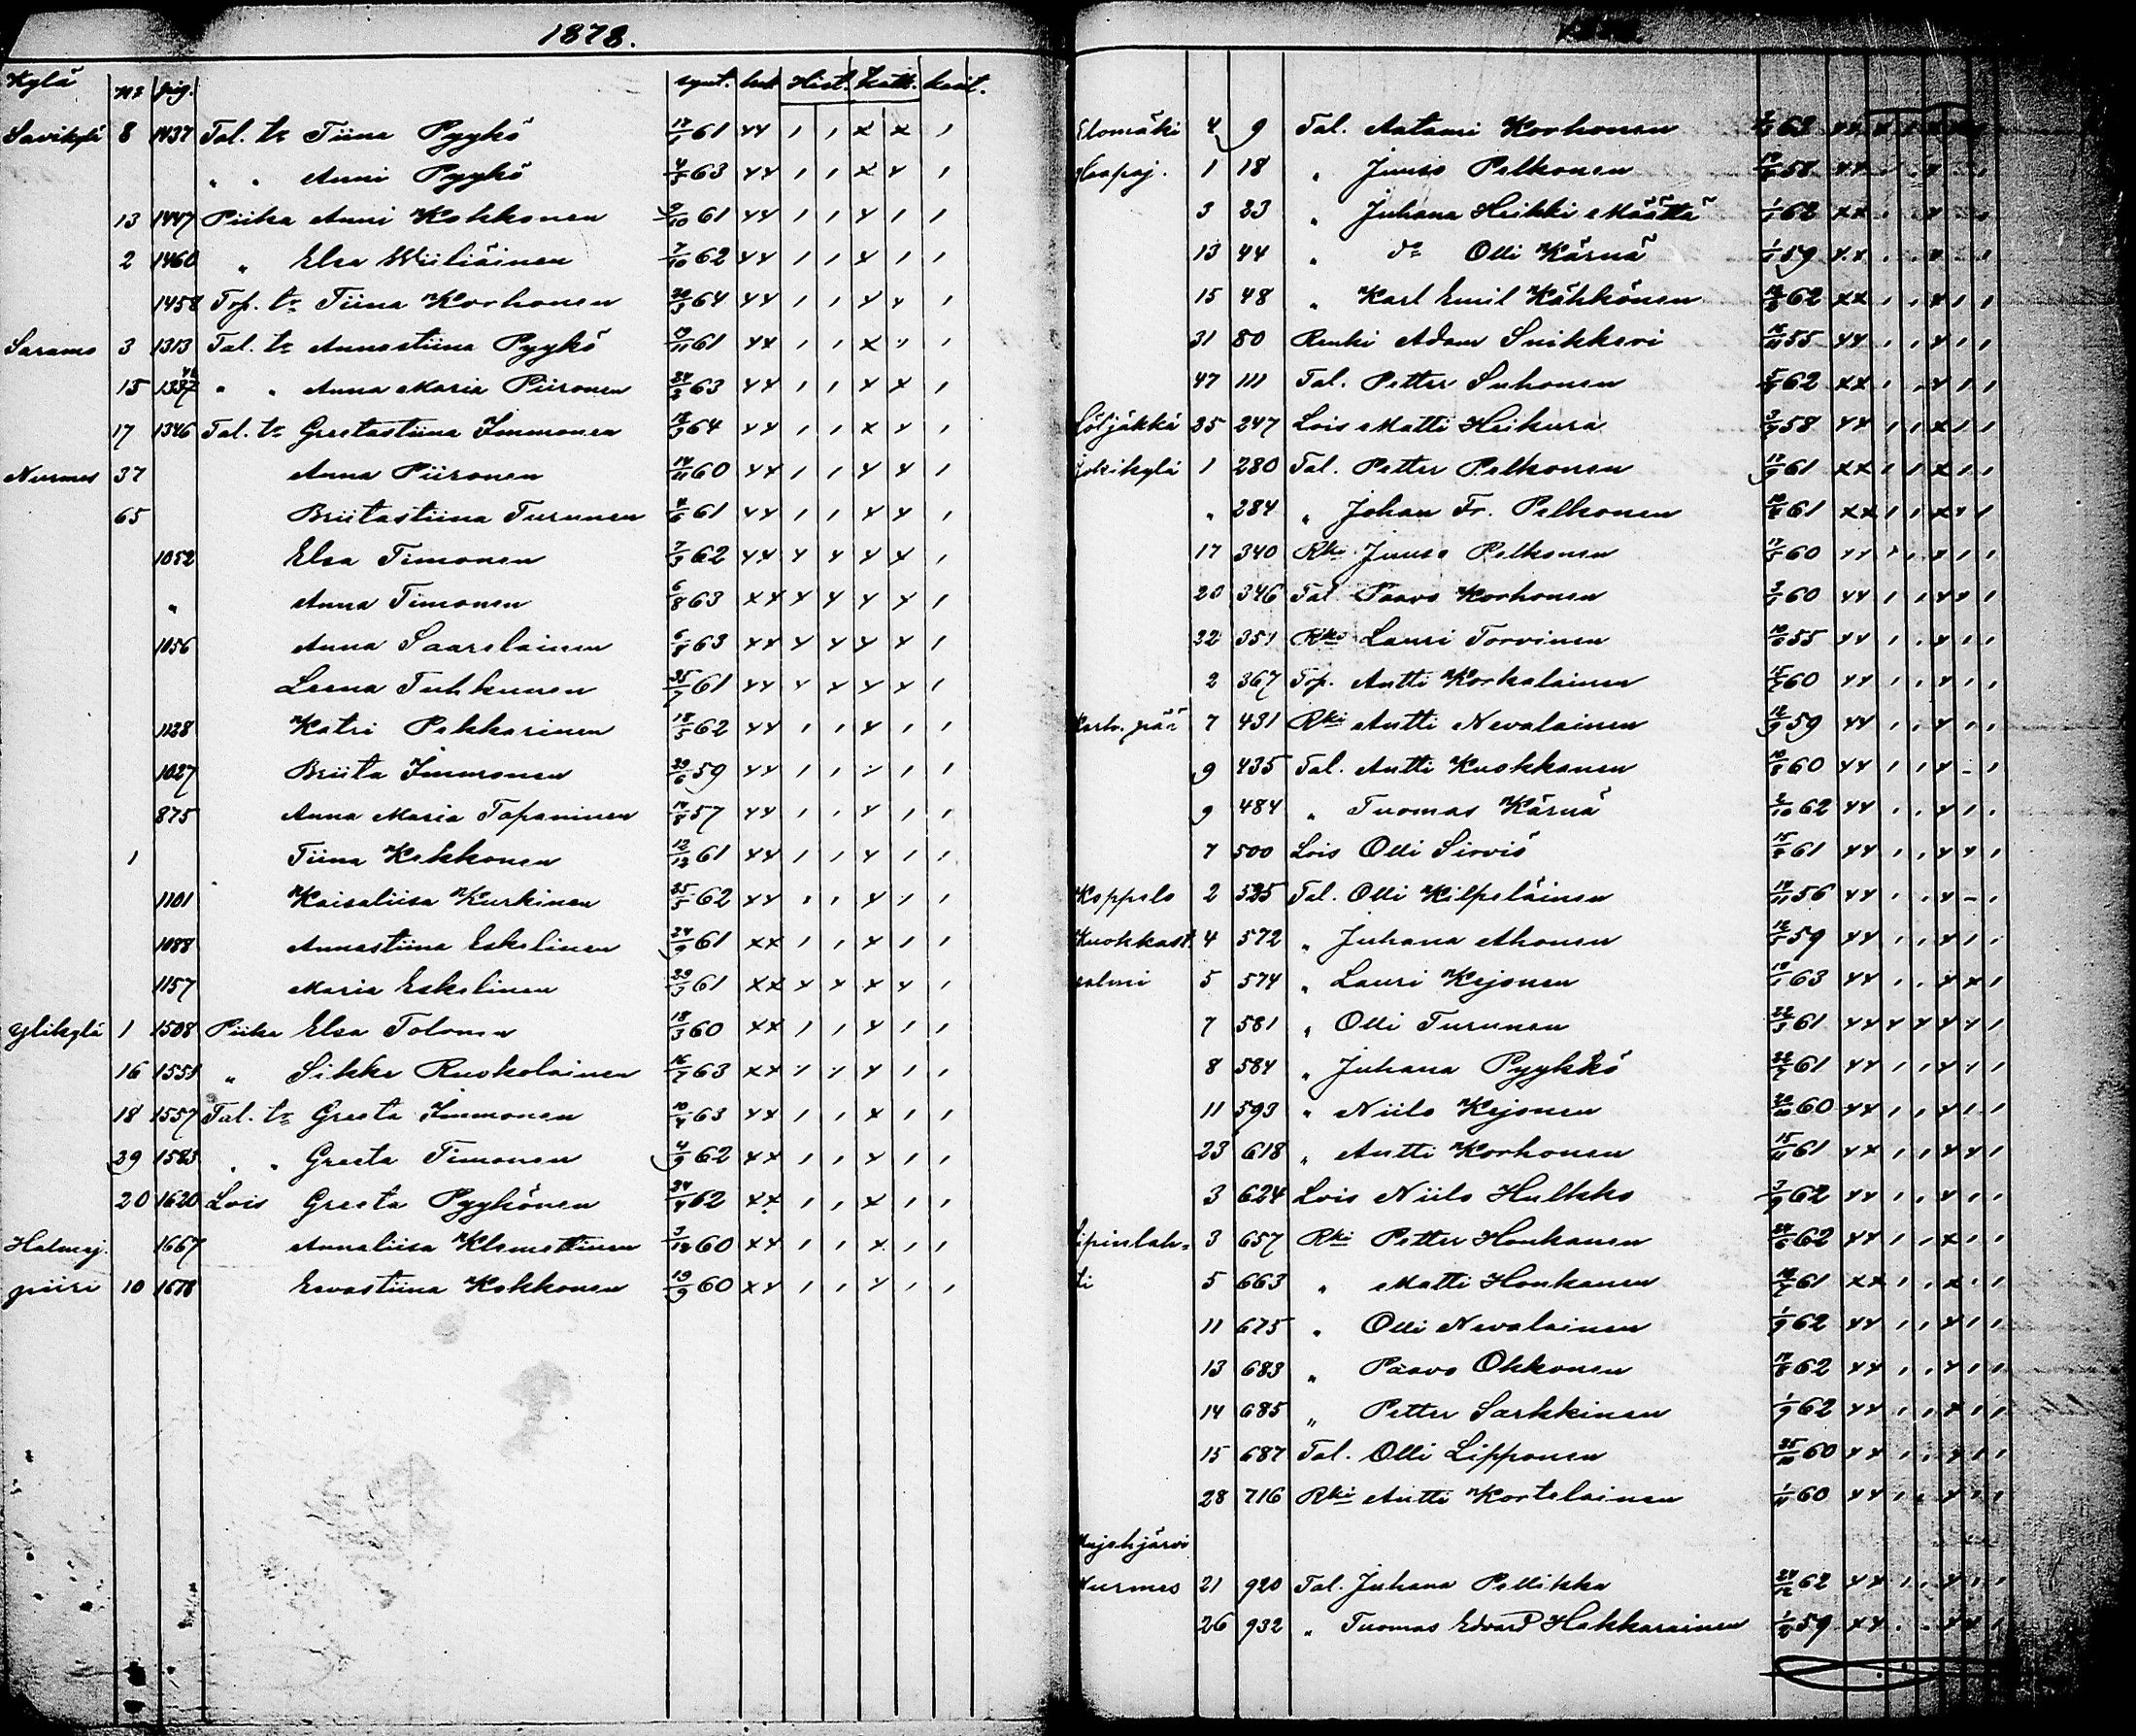 1878.
Kylä № pag. synt. luk Hist. Katk. kast.
Savikylä 8 1437 Tal. tr Tiina Pyykö 17/1 61
" " Anni Pyykö 4/3 63
13 1447 Piika Anni Kokkonen 9/10 61
2 1460 " Elsa Wiiliäinen 7/10 62
1458 Top. tr Tiina Korhonen 20/3 64
Saramo 3 1313 Tal. tr Annastiina Pyykö 19/11 61
15 1337 " " Anna Maria Piironen 24/2 63
17 1346 Tal. tr Greetastiina Immonen 12/3 64
Nurmes 37 Anna Piironen 14/11 60
65 Briitastiina Turunen 4/6 61
1052 Elsa Timonen 7/3 62
" Anna Timonen 6/8 63
1056 Anna Saarelainen 6/8 63
Leena Tuhkunen 25/7 61
1128 Katri Pekkarinen 18/5 62
1027 Briita Immonen 29/6 59
875 Anna Maria Tapaninen 14/8 57
1 Tiina Kekkonen 12/12 61
1101 Kaisaliisa Kurkinen 25/5 62
1088 Annastiina Eskelinen 24/9 61
1157 Maria Eskelinen 29/3 61
Ylikylä 1 1508 Piika Elsa Tolonen 18/3 60
16 1551 " Sikke Ruokolainen 16/7 63
18 1557 Tal. tr Greeta Immonen 10/4 63
29 1583 " " Greeta Timonen 4/9 62
20 1620 Lois Greeta Pyykönen 24/4 62
Halmej. 1667 Annaliisa Klemettinen 3/12 60
piiri 10 1678 Eevastiina Kokkonen 19/9 60
Elomäki 4 9 Tal. Aatami Korhonen 63
Haapaj. 1 18 " Juuso Pelkonen 58
3 23 " Juhana Heikki Määttä 1/1 62
13 44 " do Olli Kärnä 1/1 59
15 48 " Karl Emil Kähkönen 62
31 80 Renki Adam Snikkeri 55
47 111 Tal. Petter Suhonen 62
Höljäkkä 35 247 Lois Matti Heikura 58
Jokikylä 1 280 Tal. Petter Pelkonen 61
" 284 " Johan Fr. Pelkonen 61
17 340 Rki Juuso Pelkonen 60
20 346 Tal Paavo Korhonen 60
22 351 Rki Lauri Torvinen 10/6 55
2 367 Top. Antti Korkalainen 15/7 60
Karh. pää 7 431 Rki Antti Nevalainen 12/9 59
9 435 Tal. Antti Kuokkanen 10/8 60
9 484 " Tuomas Kärnä 2/10 62
7 500 Lois Olli Sirviö 61
Koppelo 2 525 Tal. Olli Kilpeläinen 14/11 56
Kuokkast 4 572 " Juhana Ahonen 12/5 59
salmi 5 574 " Lauri Kejonen 63
7 581 " Olli Turunen 22/3 61
8 584 " Juhana Pyykkö 22/7 61
11 593 " Niilo Kejonen 20/10 60
23 618 " Antti Korhonen 15/11 61
3 624 Lois Niilo Hulkko 3/9 62
Lipinlah= 3 657 Rki Petter Honkanen 24/6 62
ti 5 663 " Matti Honkanen 61
11 675 " Olli Nevalainen 1/9 62
13 683 " Paavo Ohkonen 14/8 62
14 685 " Petter Sarkkinen 1/9 62
15 687 Tal. Olli Lipponen 25/10 60
28 716 Rki Antti Kortelainen 1/11 60
Kujehjärvi
Nurmes 21 920 Tal. Juhana Pellikka 24/12 62
26 932 " Tuomas Edvard Hakkarainen 59